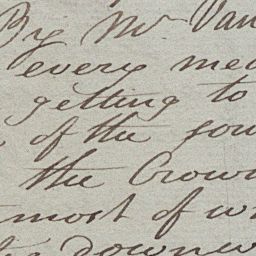 By Mr Van
every me
getting to
of the
the Crow
most of w